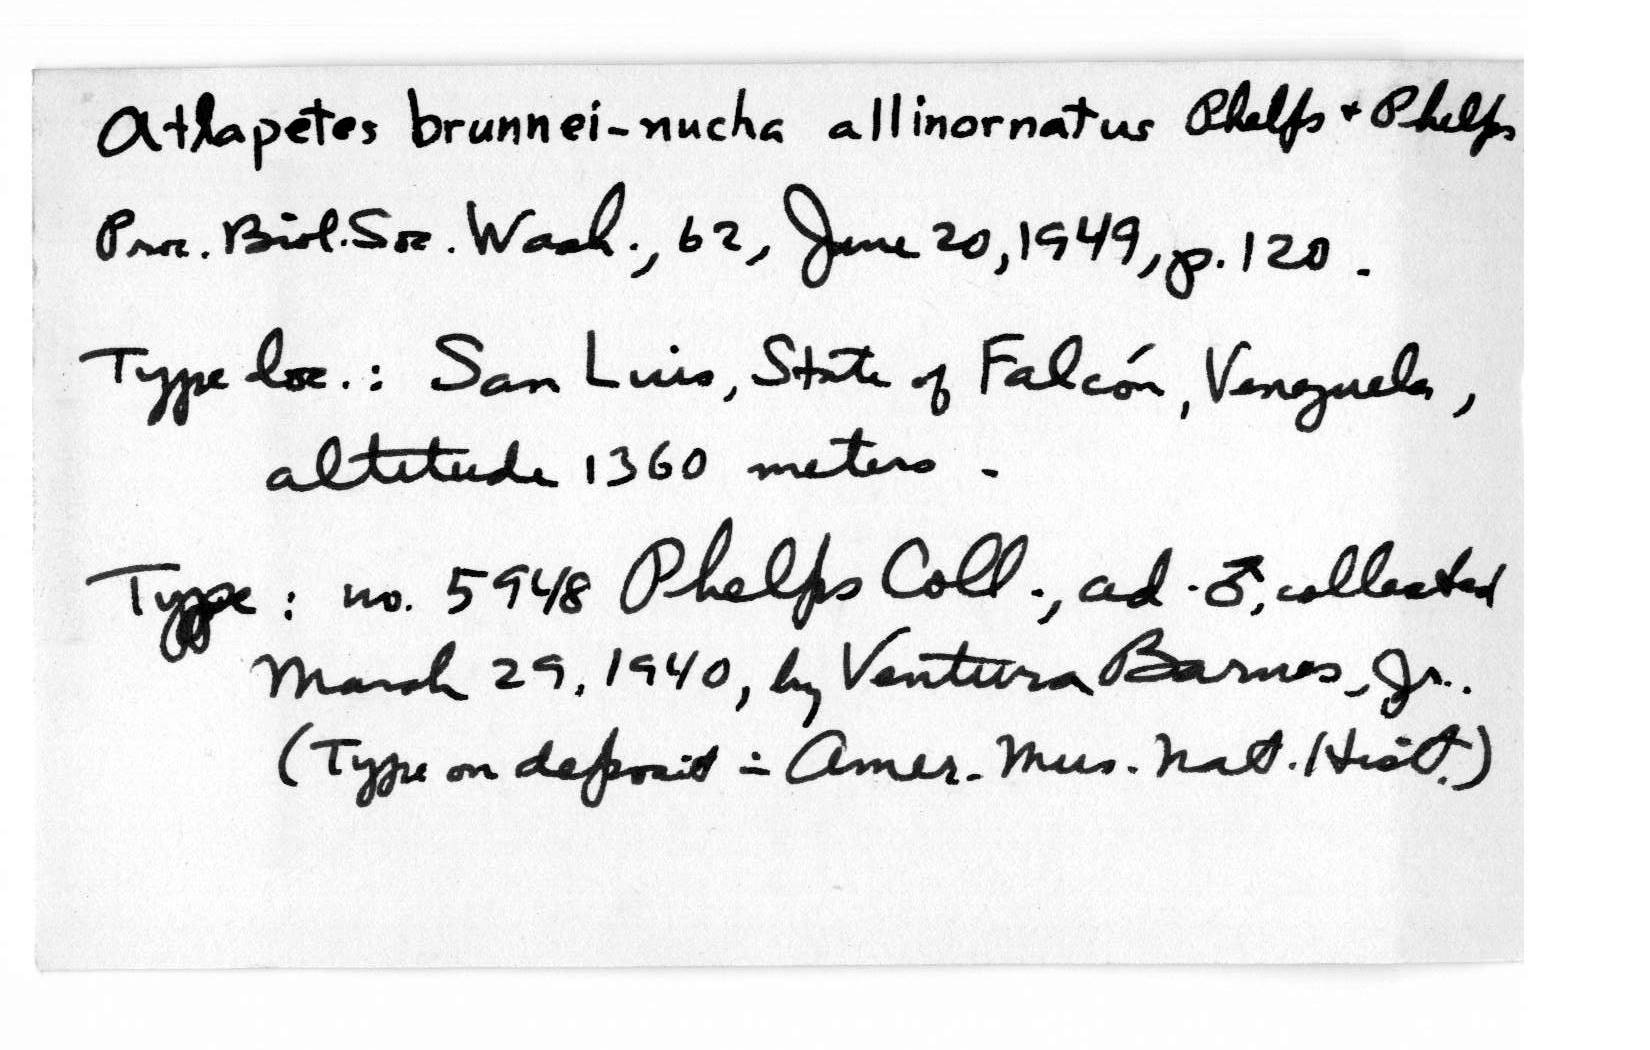 Atlapetes brunnei-nucha allinornatus Phelps + Phelps
Proc. Biol. Soc. Wash., 62, June 20, 1949, p. 120.
Type loc.: San Luis, State of Falcón, Venezuela,
altitude 1360 meters.
Type: no. 5948 Phelps Coll., ad. ♂, collected
March 29, 1940, by Ventura Barnes, Jr..
(Type on deposit in Amer. Mus. Nat. Hist.)